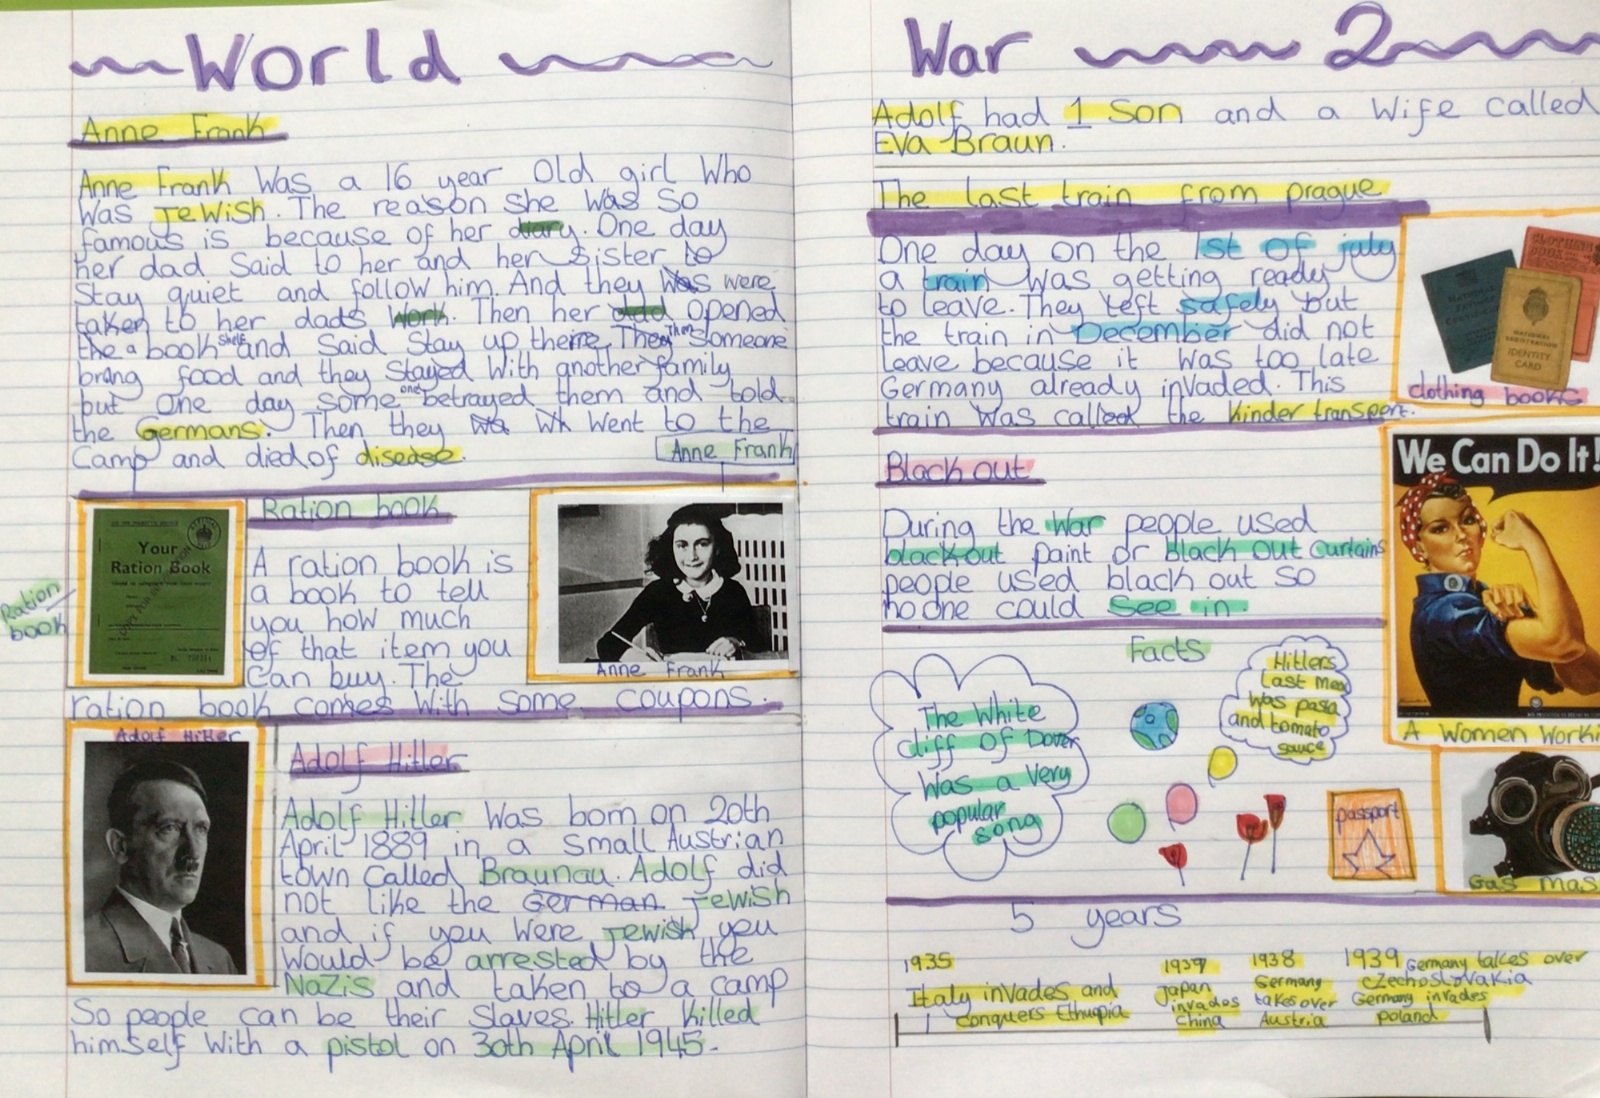 World
Anne Frank
Anne Frank Was a 16 year Old girl Who
Was Jewish. The reason she Was So
famous is because of her diary. One day
her dad Said to her and her Sister to
Stay quiet and follow him. And they Was were
taken to her dads Work. Then her dad Opened
the a book shelf and Said Stay up there. They Then Someone
brang food and they Stayed With another family
but One day some one betrayed them and told
the Germans. Then they Wa Wh Went to the
Camp and died of disease.
Anne Frank
Ration book
Your
Ration Book
Ration book
A ration book is
a book to tell
you how much
of that item you
Can buy. The
ration book comes With some Coupons.
Anne Frank
Adolf Hitler
Adolf Hitler
Adolf Hitler Was born on 20th
April 1889 in a Small Austrian
town Called Braunau. Adolf did
not like the German Jewish
and if you Were Jewish you
Would be arrested by the
Nazis and taken to a camp
So people can be their Slaves. Hitler Killed
himself With a pistol on 30th April 1945.
War 2
Adolf had 1 Son and a Wife called
Eva Braun.
The last train from prague
One day on the 1st of july
a train Was getting ready
to leave. They left safely but
the train in December did not
leave because it Was too late
Germany already invaded. This
train Was called the Kinder transport.
CLOTHING
BOOK
NATIONAL
REGISTRATION
IDENTITY
CARD
clothing books
Black out
During the War people used
black out paint or black out Curtains
people used black out so
no one could See in
We Can Do It!
A Women Worki
Facts
The White
Cliff Of Dover
Was a Very
popular
song
Hitlers
Last meal
Was pasta
and tomato
sauce
passport
Gas mas
5 years
1935
Italy invades and
conquers Ethuopia
1937
Japan
invades
China
1938
Germany
takes over
Austria
1939 Germany takes over
Czechoslovakia
Germany invades
poland